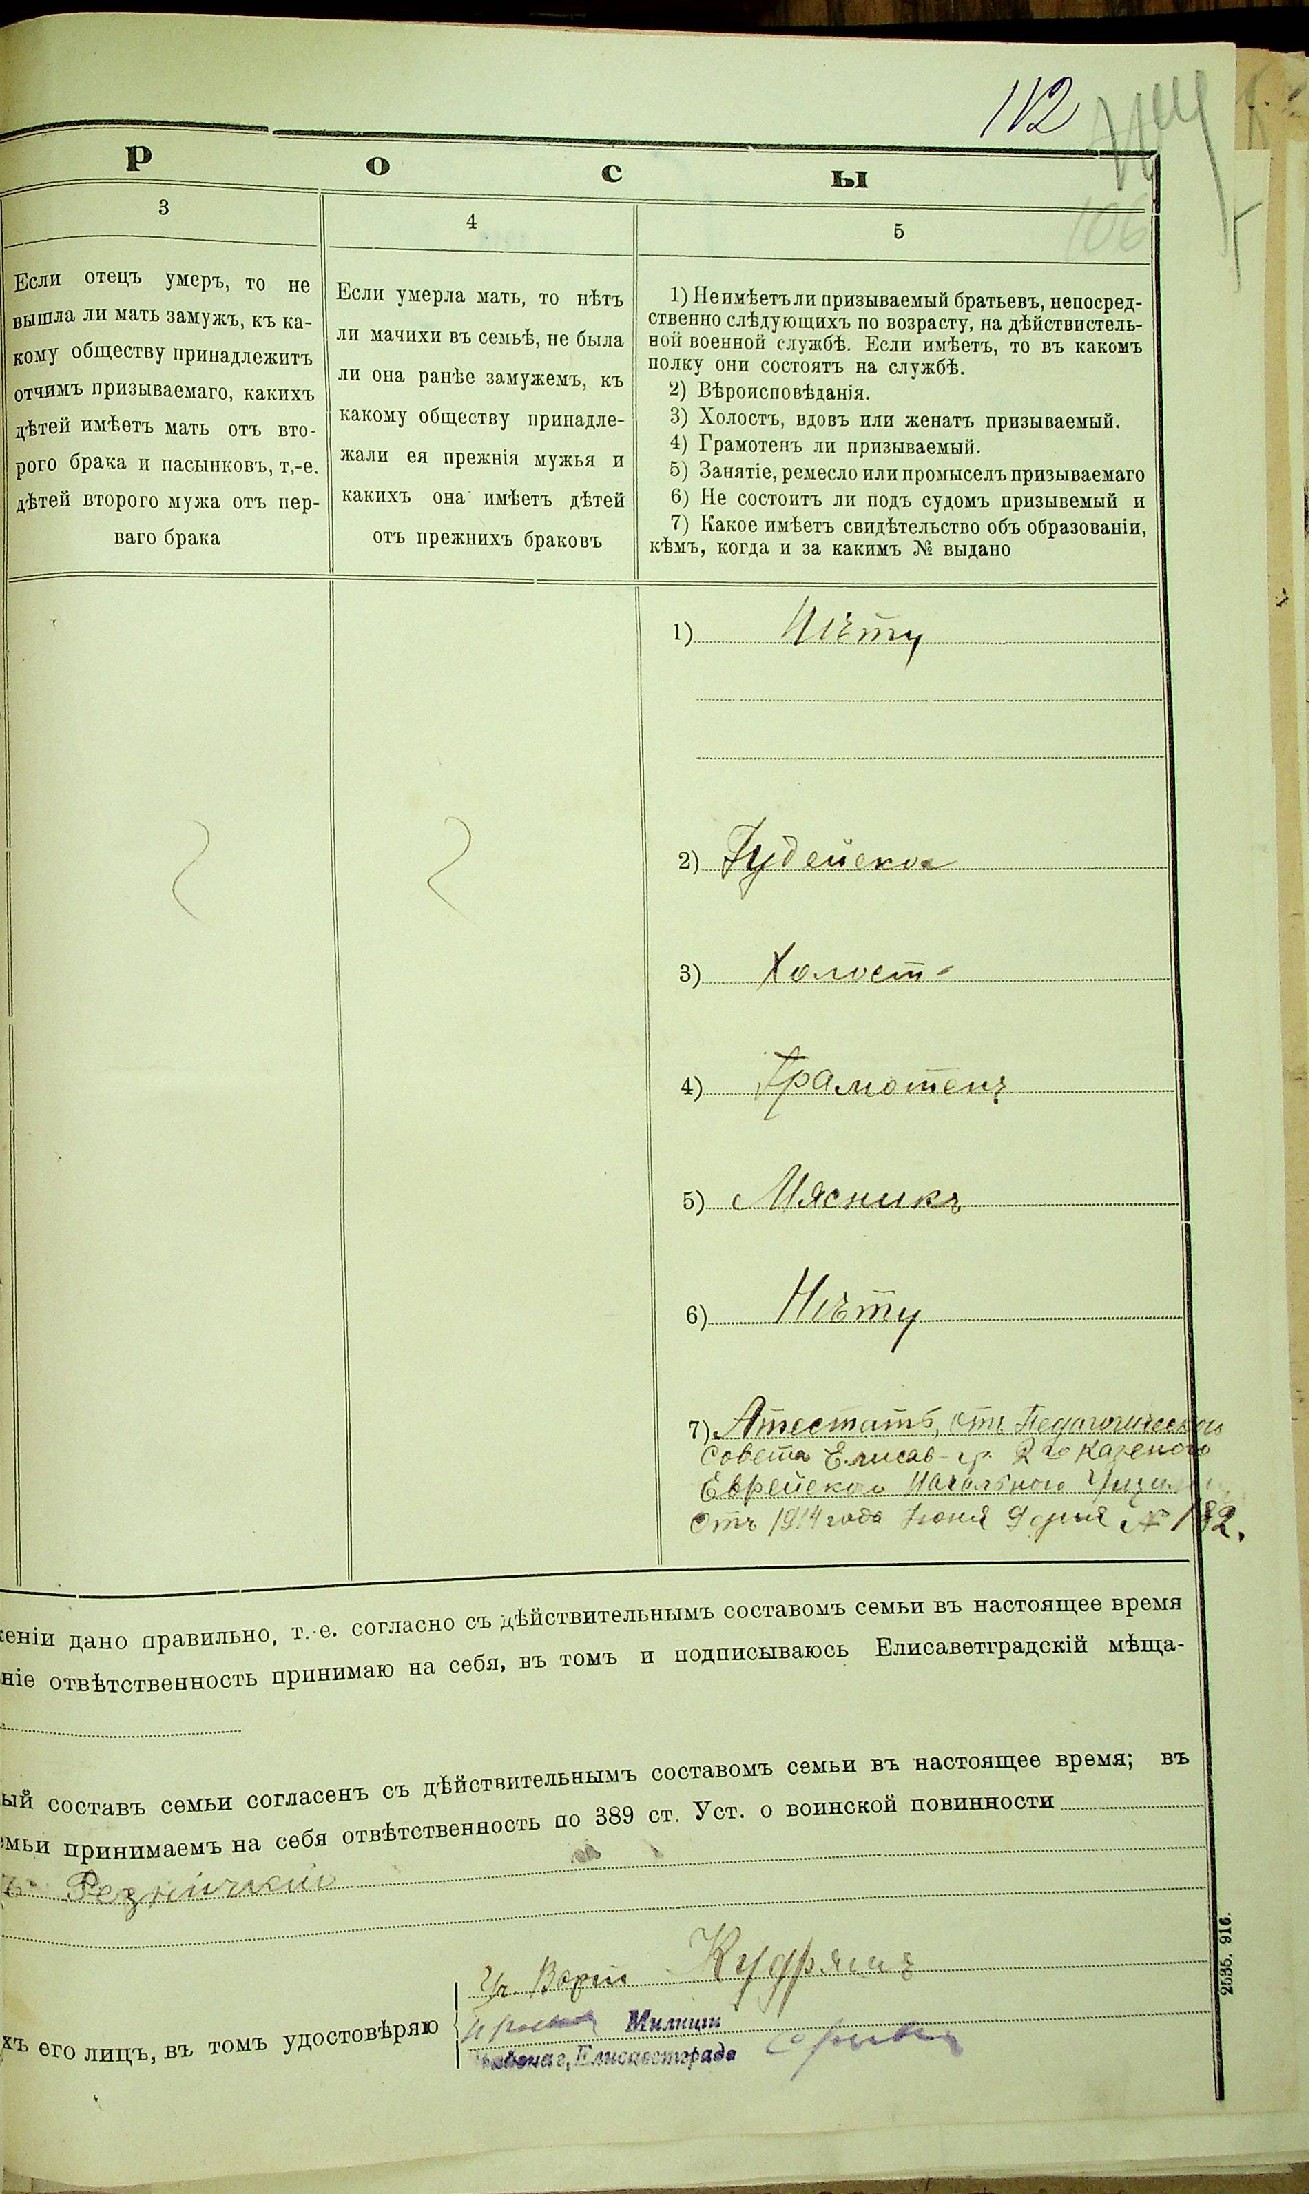 112
106
р о с ы
3
Если отецъ умеръ, то не
вышла ли мать замужъ, къ ка-
кому обществу принадлежитъ
отчимъ призываемаго, какихъ
дѣтей имѣетъ мать отъ вто-
рого брака и пасынковъ, т.-е.
дѣтей второго мужа отъ пер-
ваго брака
4
Если умерла мать, то нѣтъ
ли мачихи въ семьѣ, не была
ли она ранѣе замужемъ, къ
какому обществу принадле-
жали ея прежнія мужья и
какихъ она имѣетъ дѣтей
отъ прежнихъ браковъ
5
1) Не имѣетъ ли призываемый братьевъ, непосред-
ственно слѣдующихъ по возрасту, на дѣйствистель-
ной военной службѣ. Если имѣетъ, то въ какомъ
полку они состоятъ на службѣ.
2) Вѣроисповѣданія.
3) Холостъ, вдовъ или женатъ призываемый.
4) Грамотенъ ли призываемый.
5) Занятіе, ремесло или промыселъ призываемаго
6) Не состоитъ ли подъ судомъ призывемый и
7) Какое имѣетъ свидѣтельство объ образованіи,
кѣмъ, когда и за какимъ № выдано
1) Нѣту
2) Іудейское
3) Холостъ
4) Грамотенъ
5) Мясникъ
6) Нѣту
7) Атестатъ, отъ Педагогическаго
Совета Елисав-гр. 2го Казеного
Еврейскаго Начального Училища
Отъ 1914 года Іюня 9 дня № 182.
женіи дано правильно, т.-е. согласно съ дѣйствительнымъ составомъ семьи въ настоящее время
ніе отвѣтственность принимаю на себя, въ томъ и подписываюсь Елисаветградскій мѣща-
ый составъ семьи согласенъ съ дѣйствительнымъ составомъ семьи въ настоящее время; въ
емьи принимаемъ на себя отвѣтственность по 389 ст. Уст. о воинской повинности
Резницкій
хъ его лицъ, въ томъ удостовѣряю
Кудряшъ
Милиціи
Елисаветграда
2535. 916.